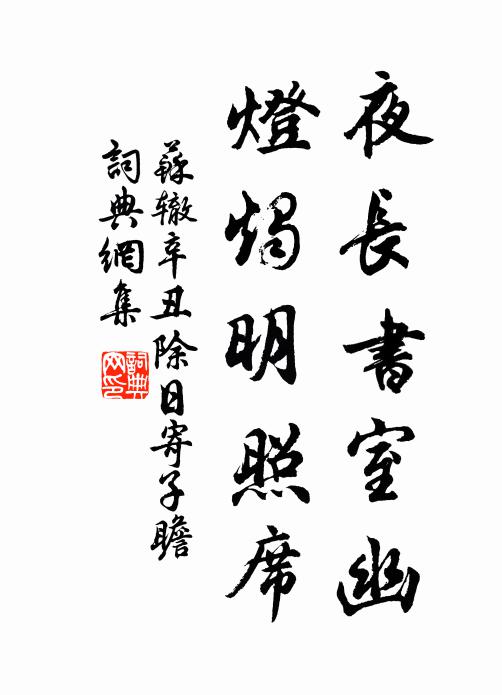 夜長書室幽
燈燭明照席
蘇辙辛丑除日寄子瞻
詞典網集
詞典网印